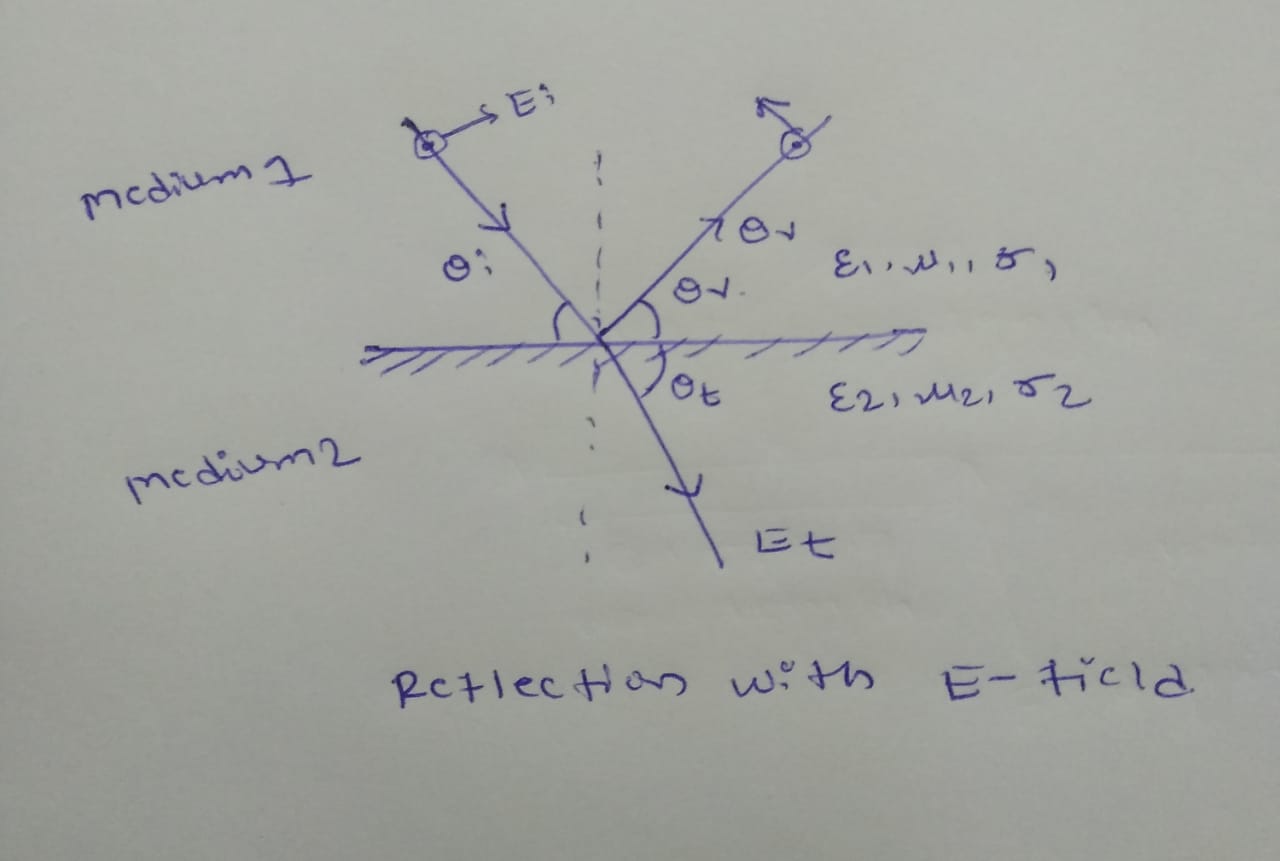 Ei
medium 1
θr
θi
θr
ε1, μ1, σ1
θt
ε2, μ2, σ2
medium 2
Et
Reflection with E-field